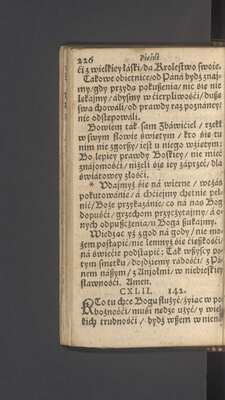 226 Pieśń
ći z wielkiey łáski/da Krolestwo swoie.
Takowe obietnice/od Paná bydź znaj-
my/gdy przyda pokuśenia/nic się nie
lekajmy/ábysmy w ćierpliwośći/dußá
swą chowali/od prawdy raz poznáney:
nie odstępowali.
Bowiem ták sam Zbáwićiel/rzekł
w swym słowie świetym/kto się tu
mnie zgorßy/ iest u niego wźietym:
Bo lepiey prawdy Boskiey/ nie mieć
znájomośći/ niżeli się iey záprzeć/ dla
świátowey złośći.
* Wdajmyż się na wierne/ wczás
pokutowánie/ á chćiejmy chętnie peł-
nić/ Boże przykazánie/ co ná nas Bog
dopuśći/ grzechom przyczytajmy/ á o-
nych odpußczenia/u Bogá ßukajmy.
Wiedząc yż zgod ná gody/ nie mo-
żem postąpić/nie lemmyś się ćięßkośći/
ná świećie podstąpić: Ták wßyscy po-
tym smetku/ doydźiemy radośći/ z Pá-
nem náßym/ z Anjołmi/ w niebieskiey
sławnośći. Amen.
CXLII. 142.
KTo tu chce Bogu służyć/żyiąc w po
bożnośći/ muśi nedze użyć/ y wiel-
kich trudnośći / bydź wßem w nien